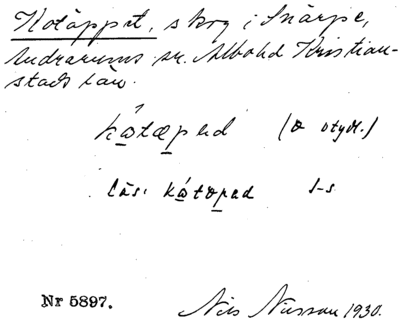 Kotäppet, skog i Snärpe,
Andrarums sn. Albo hd Kristian-
stads län.
kåtæped (æ otydl.)
läs: kåtæped s-s
Nr 5897.
Nils Nilsson 1930.